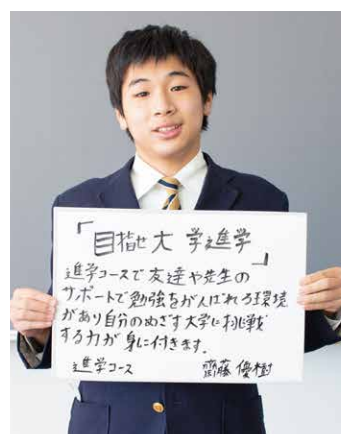 「目指せ大学進学」
進学コースで友達や先生の
サポートで勉強をがんばれる環境
があり自分のめざす大学に挑戦
する力が身に付きます。
進学コース 齋藤 優樹